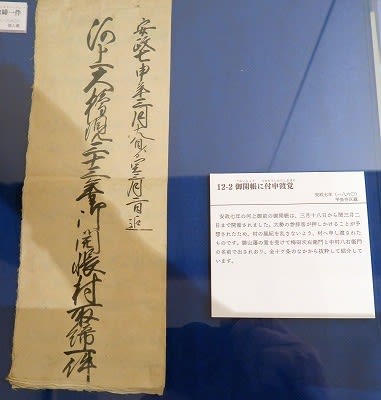 締一件
個人蔵
安政七申年三月十八日ゟ閏三月二日迄
河上大権現三十三年御開帳村取締一件
12-2 御開帳に付申渡覚
安政七年（一八六〇）
平泉寺区蔵
安政七年の河上御前の御開帳は、三月十八日から閏三月二
日まで開催されました。大勢の参拝客が押しかけることが予
想されたため、村の風紀を乱さないよう、村へ申し渡された
ものです。勝山藩の意を受けて梅田次右衛門と中村八右衛門
の名前で出されおり、全十ケ条のなかから抜粋して紹介して
います。